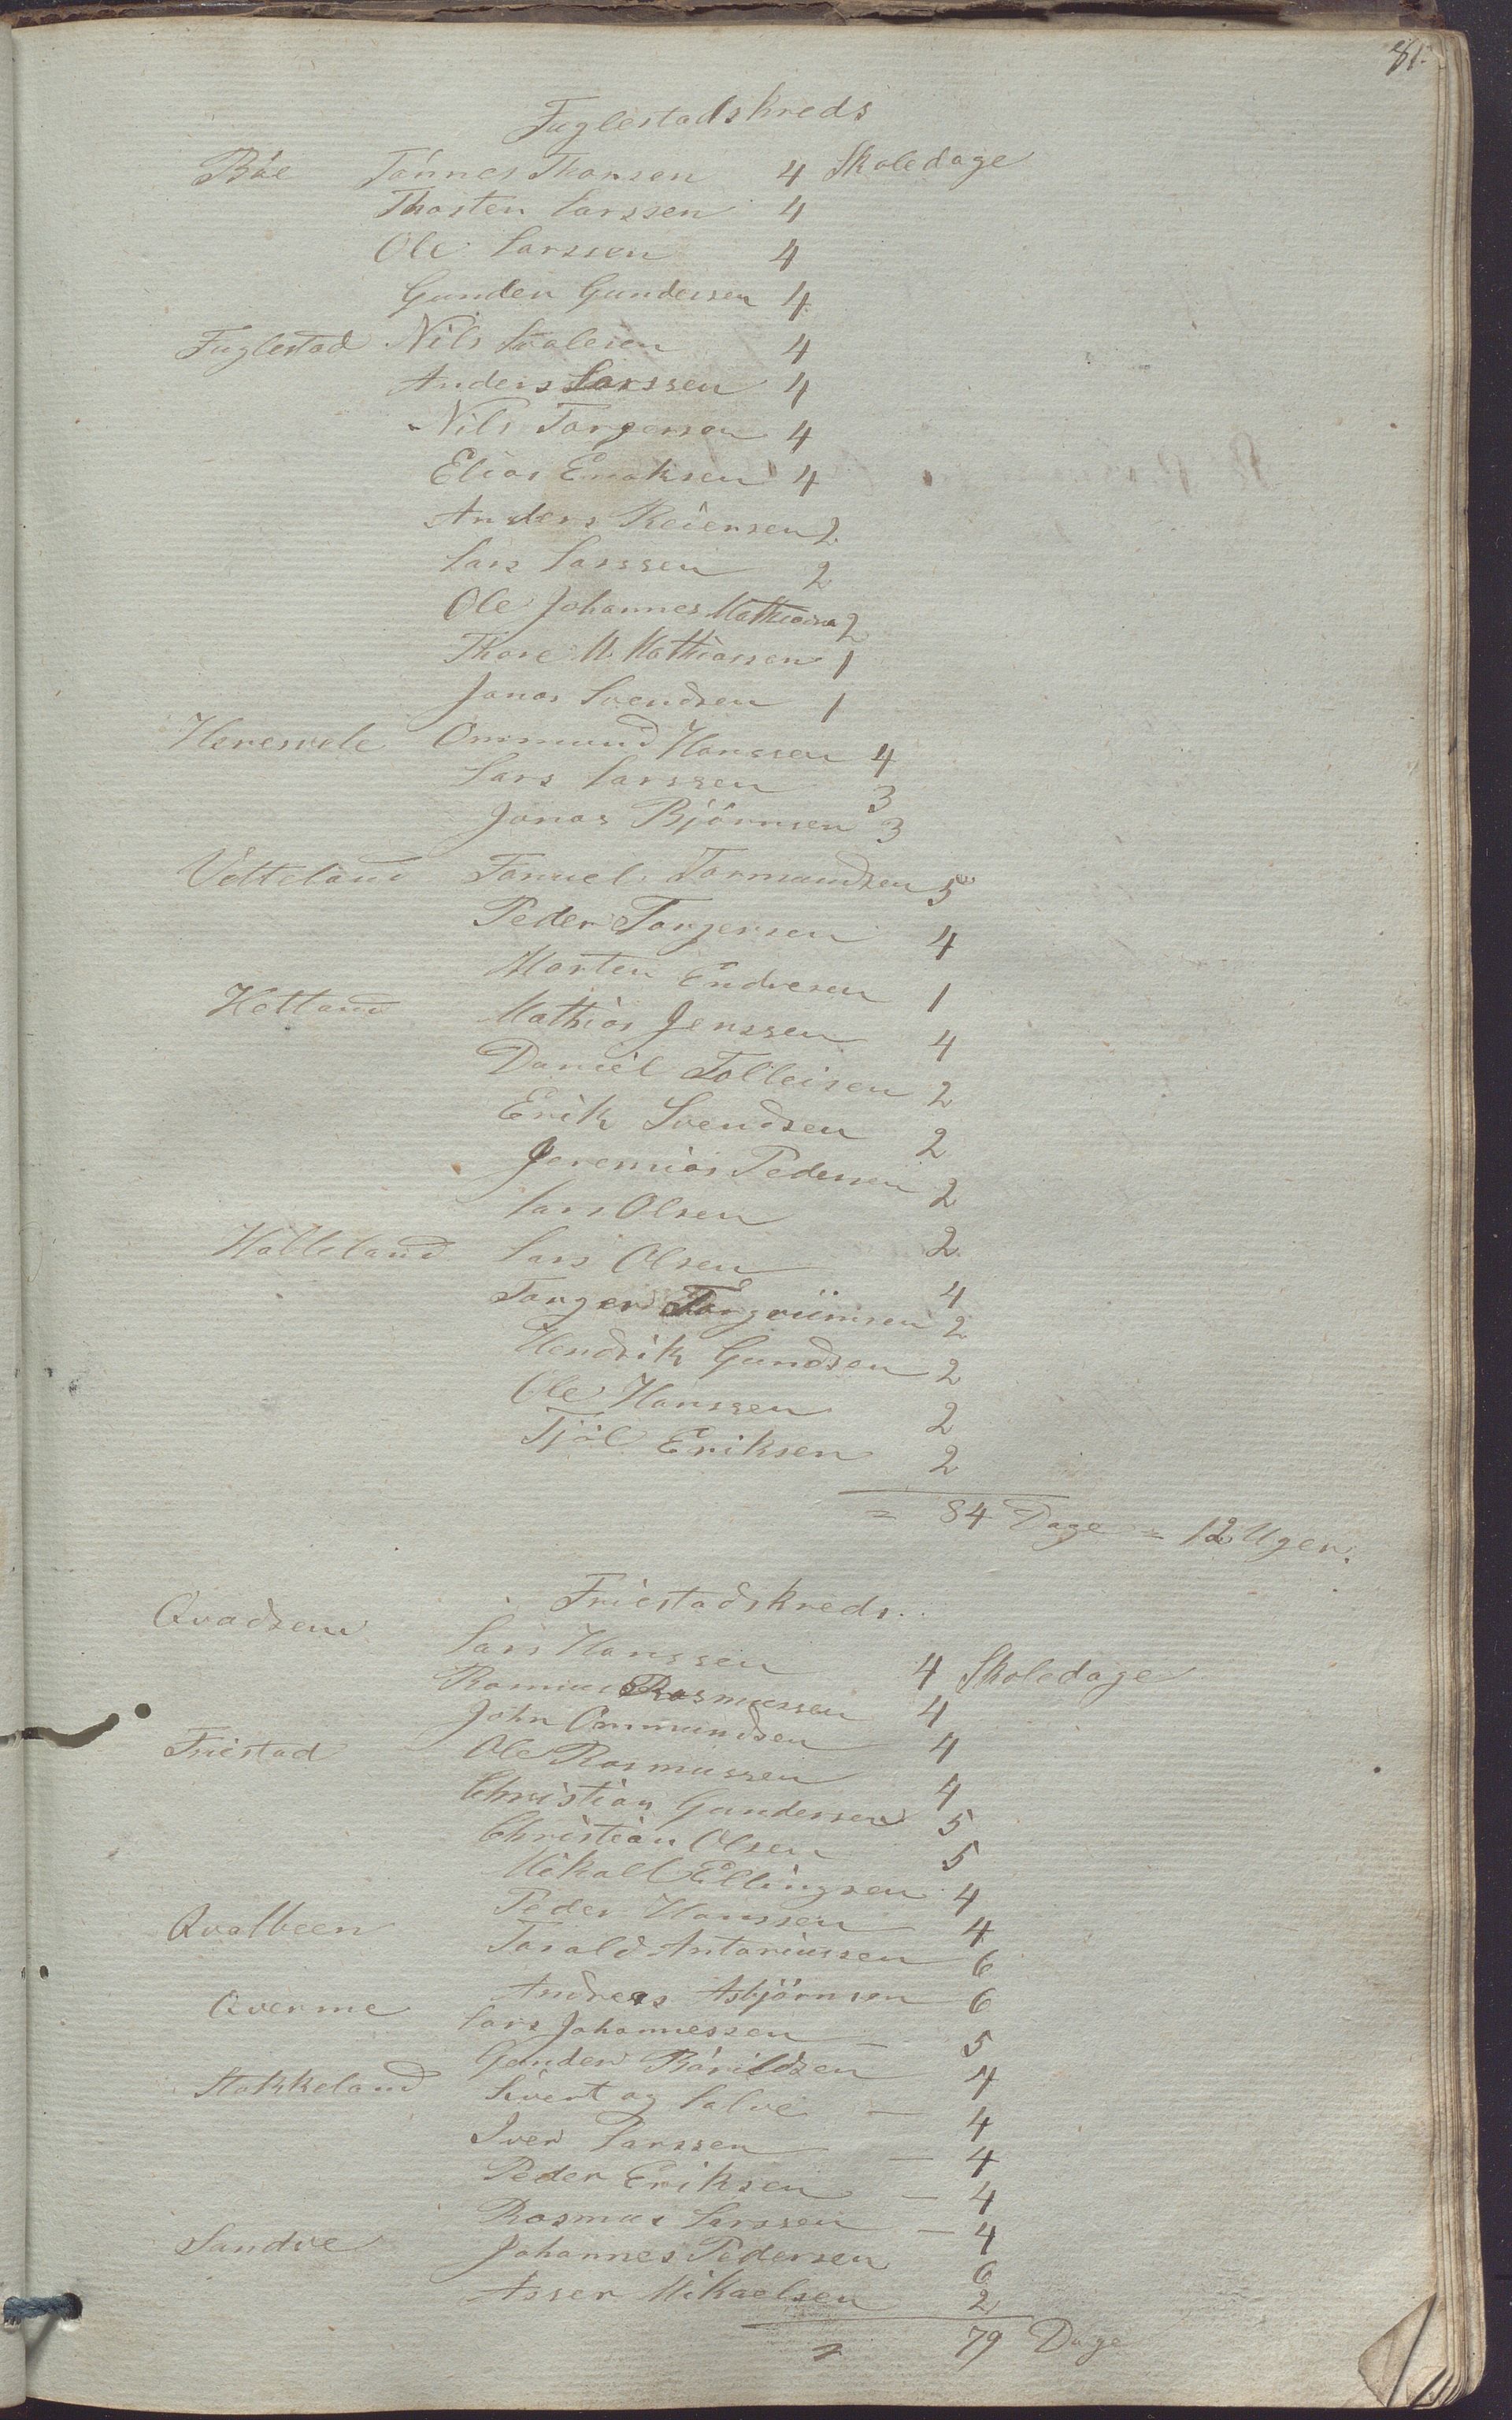 81.
Fuglestadskreds
Böe Tönnes Thorsen 4 Skoledage
Thorsten Larssen 4
Ole Larssen 4
Gunder Gundersen 4
Fuglestad Nils Svalesen 4
Anders Larssen 4
Nils Torgersen 4
Elias Enoksen 4
Anders Reiersen 2
Lars Larssen 2
Ole Johannes Mathiasen 2
Thore M. Mathiassen 1
Jonas Svendsen 1
Herresvele Ommund Hanssen 4
Lars Larssen 3
Jonas Björnsen 3
Vetteland Tønnel Tormundsen 5
Peder Torgersen 4
Morten Endresen 1
Hetland Mathias Jenssen 4
Daniel Tolleisen 2
Erik Svendsen 2
Jeremias Pedersen 2
Lars Olsen 2
Holleland Lars Olsen 4
Torger Torgriimsen 2
Hendrik Gundsen 2
Ole Hanssen 2
Tjöl Eriksen 2
= 84 Dage = 12 Uger.
Friestadskreds.
Qvadsem Lars Hanssen 4 Skoledage
Rasmus Rasmussen 4
John Ommundsen 4
Friestad Ole Rasmussen 4
Christian Gundersen 5
Christian Olsen 5
Mikall Ellingsen 4
Peder Hanssen 4
Qvalbeen Torald Antoniussen 6
Andreas Asbjörnsen 6
Qverme Lars Johannessen — 5
Gunder Bårildsen 4
Stokkeland Sivert og Salve — 4
Iver Larssen — 4
Peder Eriksen — 4
Rasmus Larssen — 4
Sandve Johannes Pedersen 6
Asser Mikaelsen 2
79 Dage